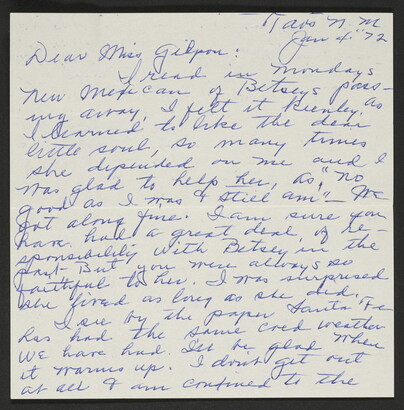 Taos N. M
Jan 4. '72
Dear Miss Gilpin:
I read in Mondays
New Mexican of Betseys pass-
ing away, I felt it keenly, as
I learned to like the dear
little soul, so many times
she depended on me and I
was glad to help her, as, "no
good as I was "I still am" - We
got along fine. I am sure you
have had a great deal, of re-
sponsibility with Betsey in the
past - But you were always so
faithful to her. I was surprised
she lived as long as she did.
I see by the paper Santa Fe
has had the same cold weather
we have had. I'll be glad when
it warms up. I don't get out
at all & am confined to the